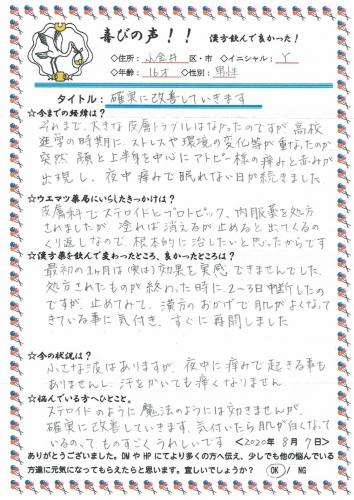 喜びの声!! 漢方飲んで良かった!
◇住所：小金井 区・市 ◇イニシャル：Y
◇年齢：16才 ◇性別：男性
タイトル：確実に改善していきます
☆今までの経緯は？
それまで、大きな皮膚トラブルはなかったのですが、高校
進学の時期に、ストレスや環境の変化等が重なったのか
突然 顔と上半身を中心にアトピー様の痛みと赤みが
出現し、夜中痛みで眠れない日が続きました。
☆ウエマツ薬局にいらしたきっかけは？
皮膚科でステロイドとプロトピック、内服薬を処方
されましたが、塗れば消えるが止めると出てくるの
くり返しなので、根本的に治したいと思ったからです
☆漢方薬を飲んで変わったところ、良かったところは？
最初の1ヶ月は(実は)効果を実感できませんでした。
処方されたものが終わった時に、2〜3日中断したの
ですが、止めてみて、漢方のおかげで肌がよくなって
きている事に気付き、すぐに再開しました
☆今の状況は？
小さな波はありますが、夜中に痛みで起きる事も
ありませんし、汗をかいても痛くなりません
☆悩んでいる方へひとこと。
ステロイドのように魔法のようには効きませんが、
確実に改善していきます。気付いたら肌が白くなって
いるのって ものすごくうれしいです <2020年 8月 7日>
ありがとうございました。DMやHPにてより多くの方へ伝え、少しでも他の悩んでいる
方達に元気になってもらえたらと思います。宜しいでしょうか？ OK / NG